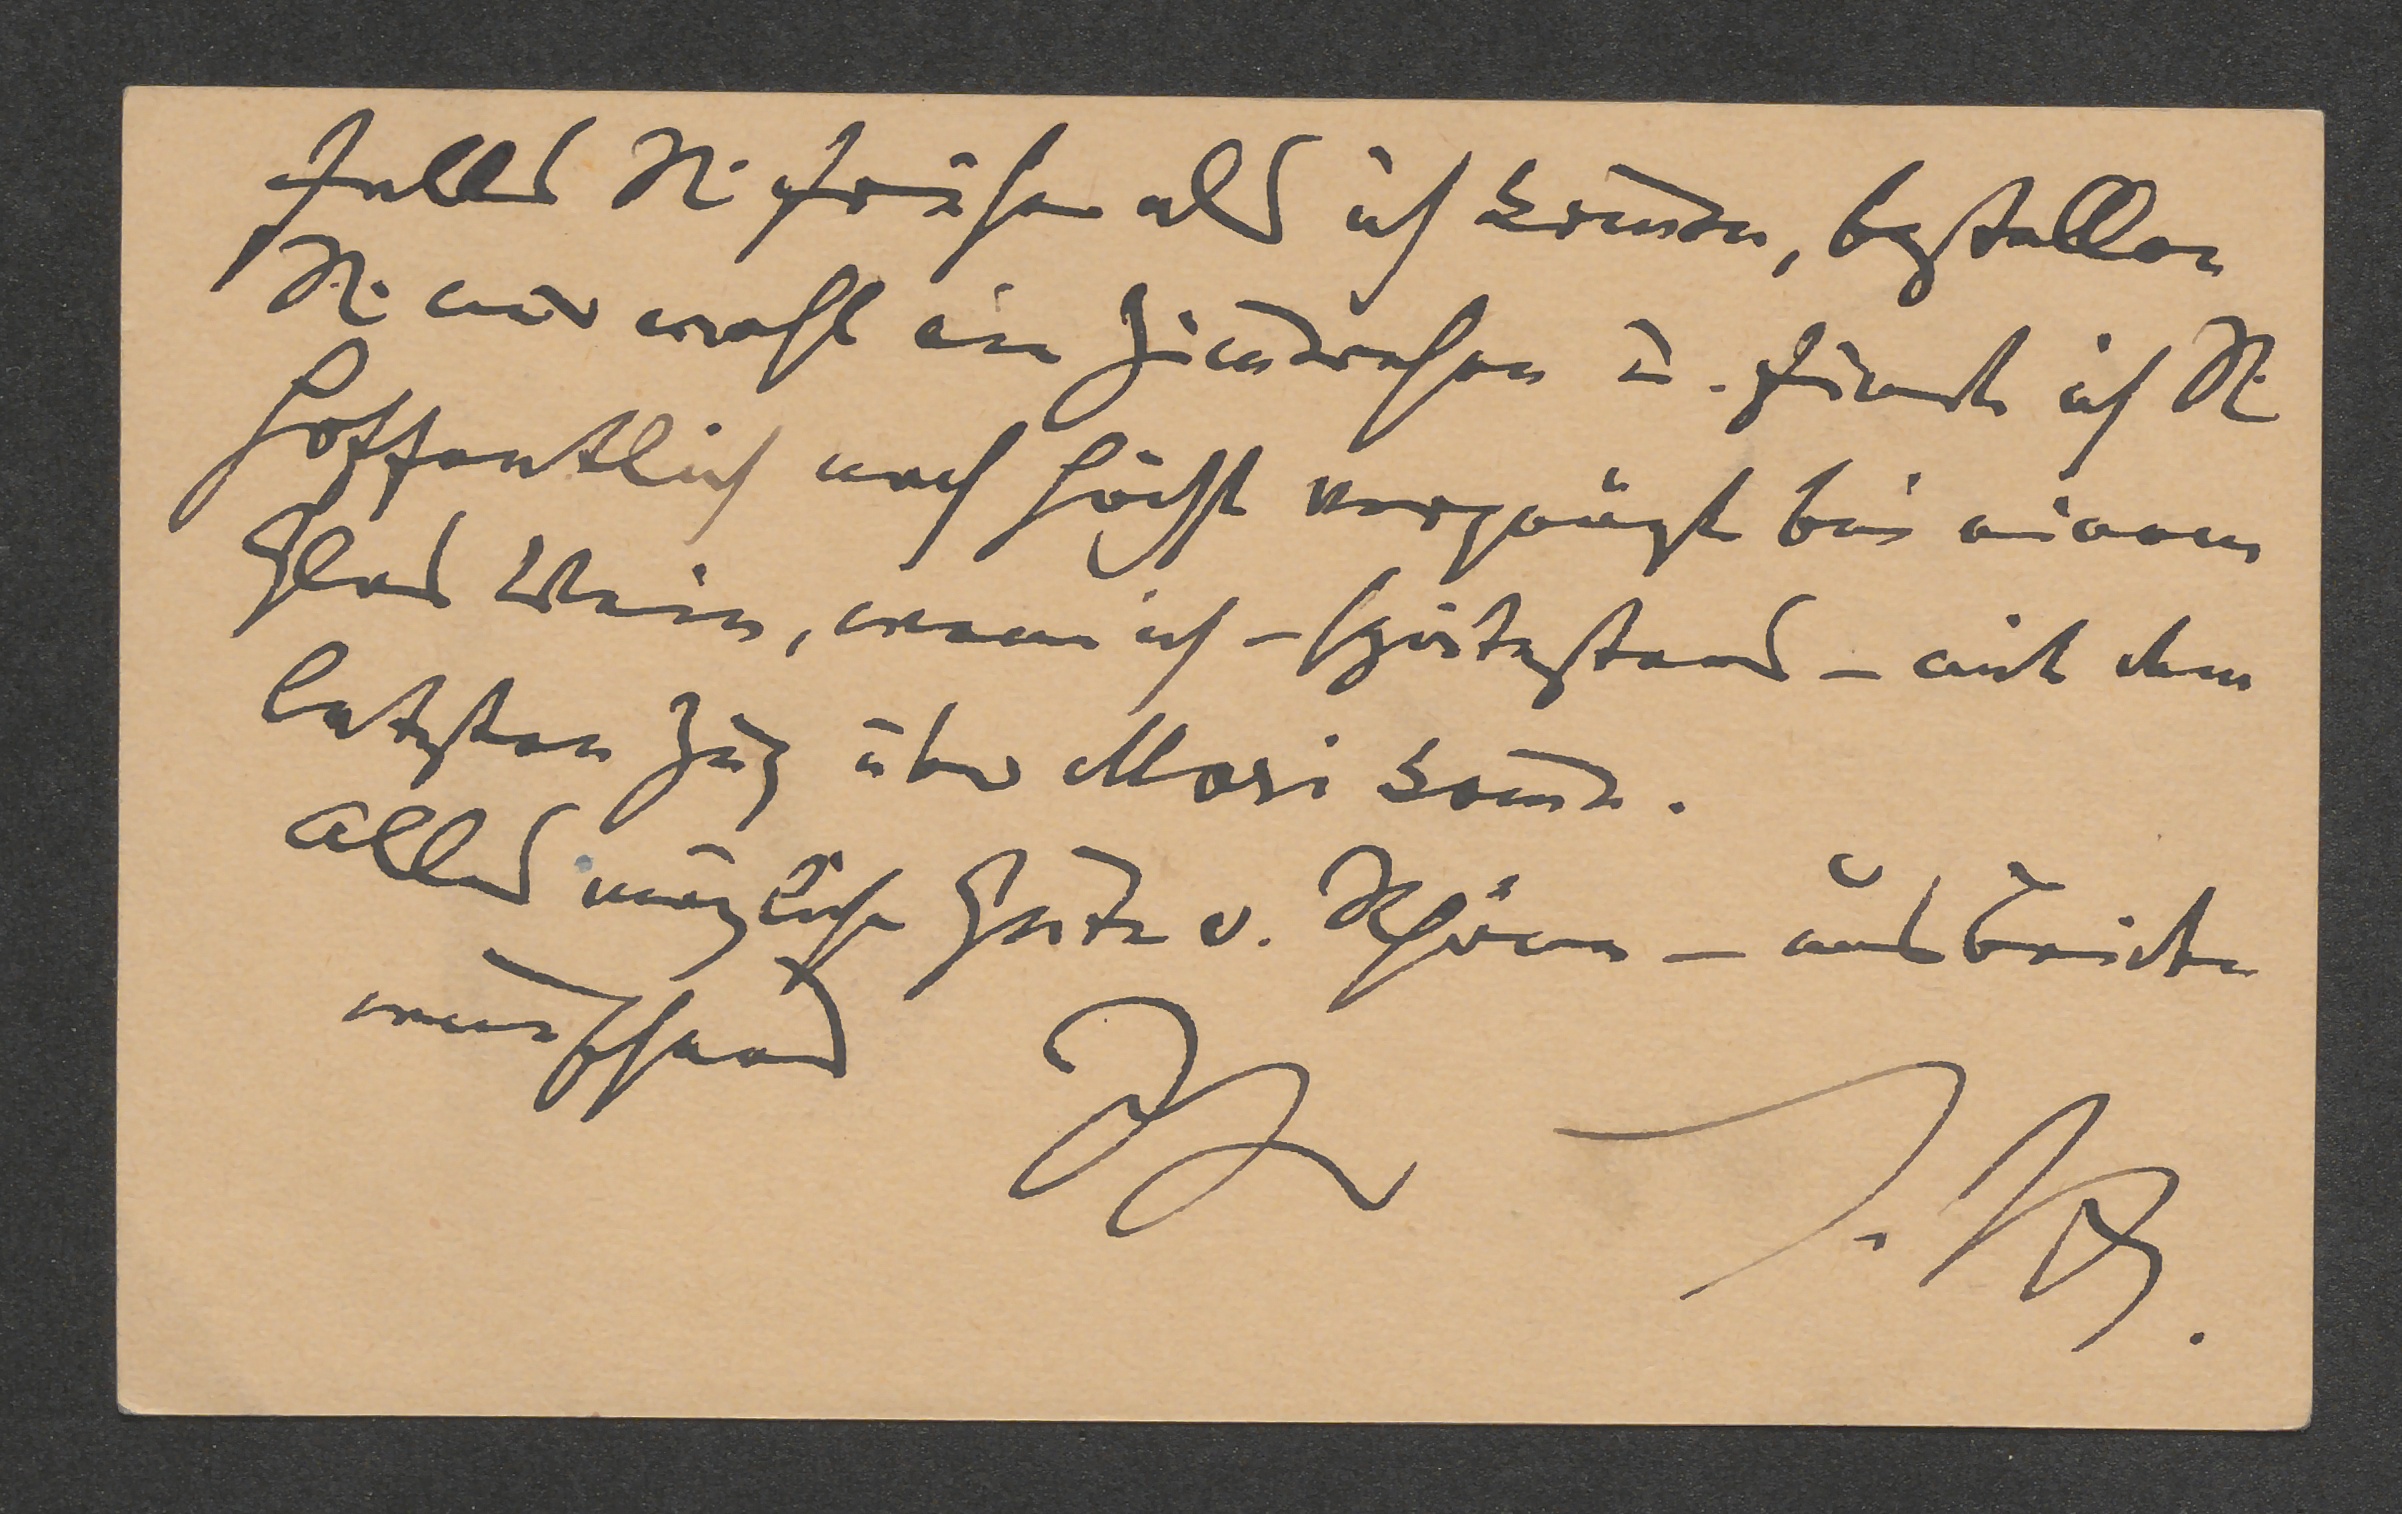 falls Sie früher als ich kommen, bestellen
Sie mir wohl ein Zimmerchen u. finde ich Sie
hoffentlich noch höchst vergnügt bei einem
Glas Wein, wenn ich – spätestens – mit dem
letzten Zug über Mori komme.
Alles mögliche Gute u. Schöne – unbedingt
wünschend Ihr